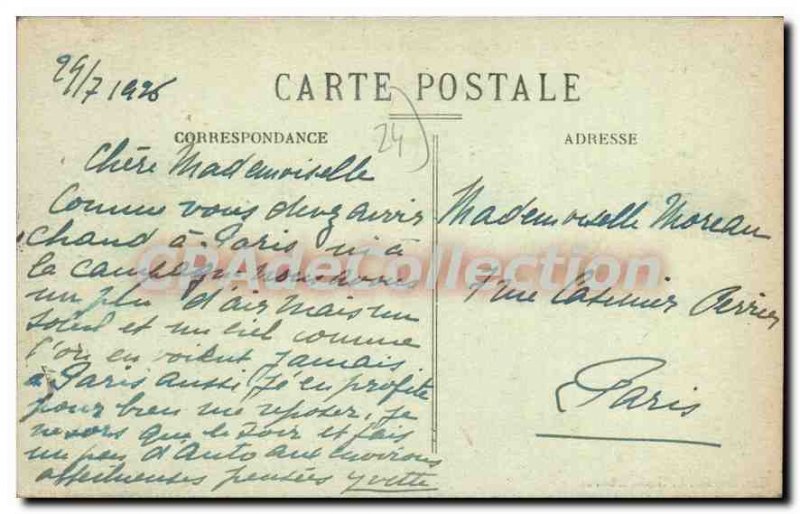 29/7 1926
CARTE POSTALE
CORRESPONDANCE
24
ADRESSE
Chère Mademoiselle
Comme vous devez avoir
chaud à Paris ici à
la campagne nous avons
un peu d'air mais un
soleil et un ciel comme
l'on en voient jamais
à Paris aussi j'en profite
pour bien me reposer, je
ne sors que le soir et fais
un peu d'Auto aux environs
affectueuses pensées Yvette
Mademoiselle Moreau
7 rue Casimir Perrier
Paris
CPADeCollection